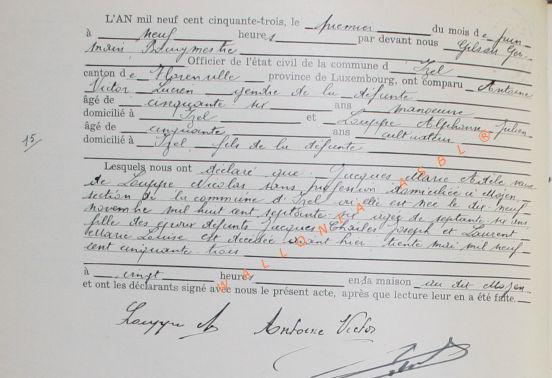 L'AN mil neuf cent cinquante-trois, le premier du mois de juin
à neuf heures par devant nous Ger
main Bourgmestre
Officier de l'état civil de la commune d'Izel
canton de Florenville province de Luxembourg, ont comparu Antoine
Victor Lucien gendre de la défunte
âgé de cinquante six ans manoeuvre
domicilié à Izel et Louppe Alphonse Julien
âgé de cinquante ans cultivateur
domicilié à Izel fils de la défunte
15
Lesquels nous ont déclaré que Jacques Marie Adèle, veuve
de Louppe Nicolas sans profession domiciliée à Moyen
section de la commune d'Izel où elle est née le dix neuf
novembre mil huit cent septante agée de septante
fille des époux défunts Jacques Charles Joseph et Laurent
Marie Louise est décédée avant hier trente mai mil neuf
cent cinquante trois
à vingt heures en la maison au dit Moyen
et ont les déclarants signé avec nous le présent acte, après que lecture leur en a été faite.
Louppe A Antoine Victor
WALLONIA ASBL ®